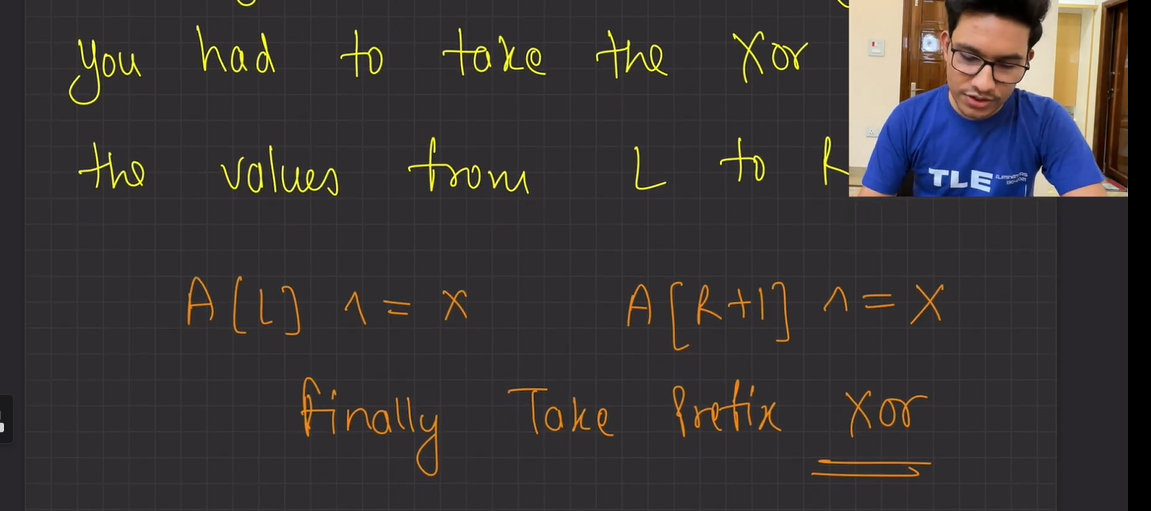 you had to take the Xor
the values from L to R
A[L] ^= X A[R+1] ^= X
finally Take Prefix Xor
TLE